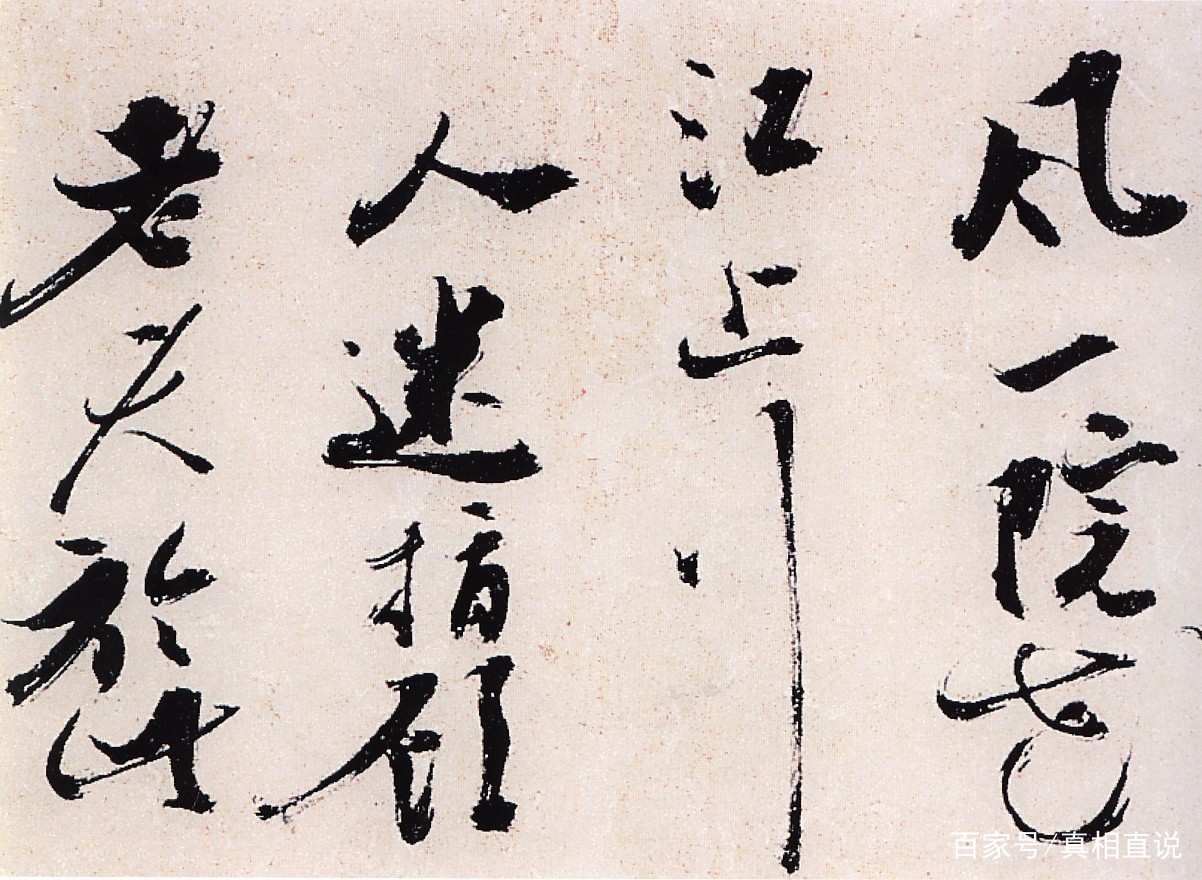 风一院
江上
人迷指顾
老夫於此
百家号/真相直说